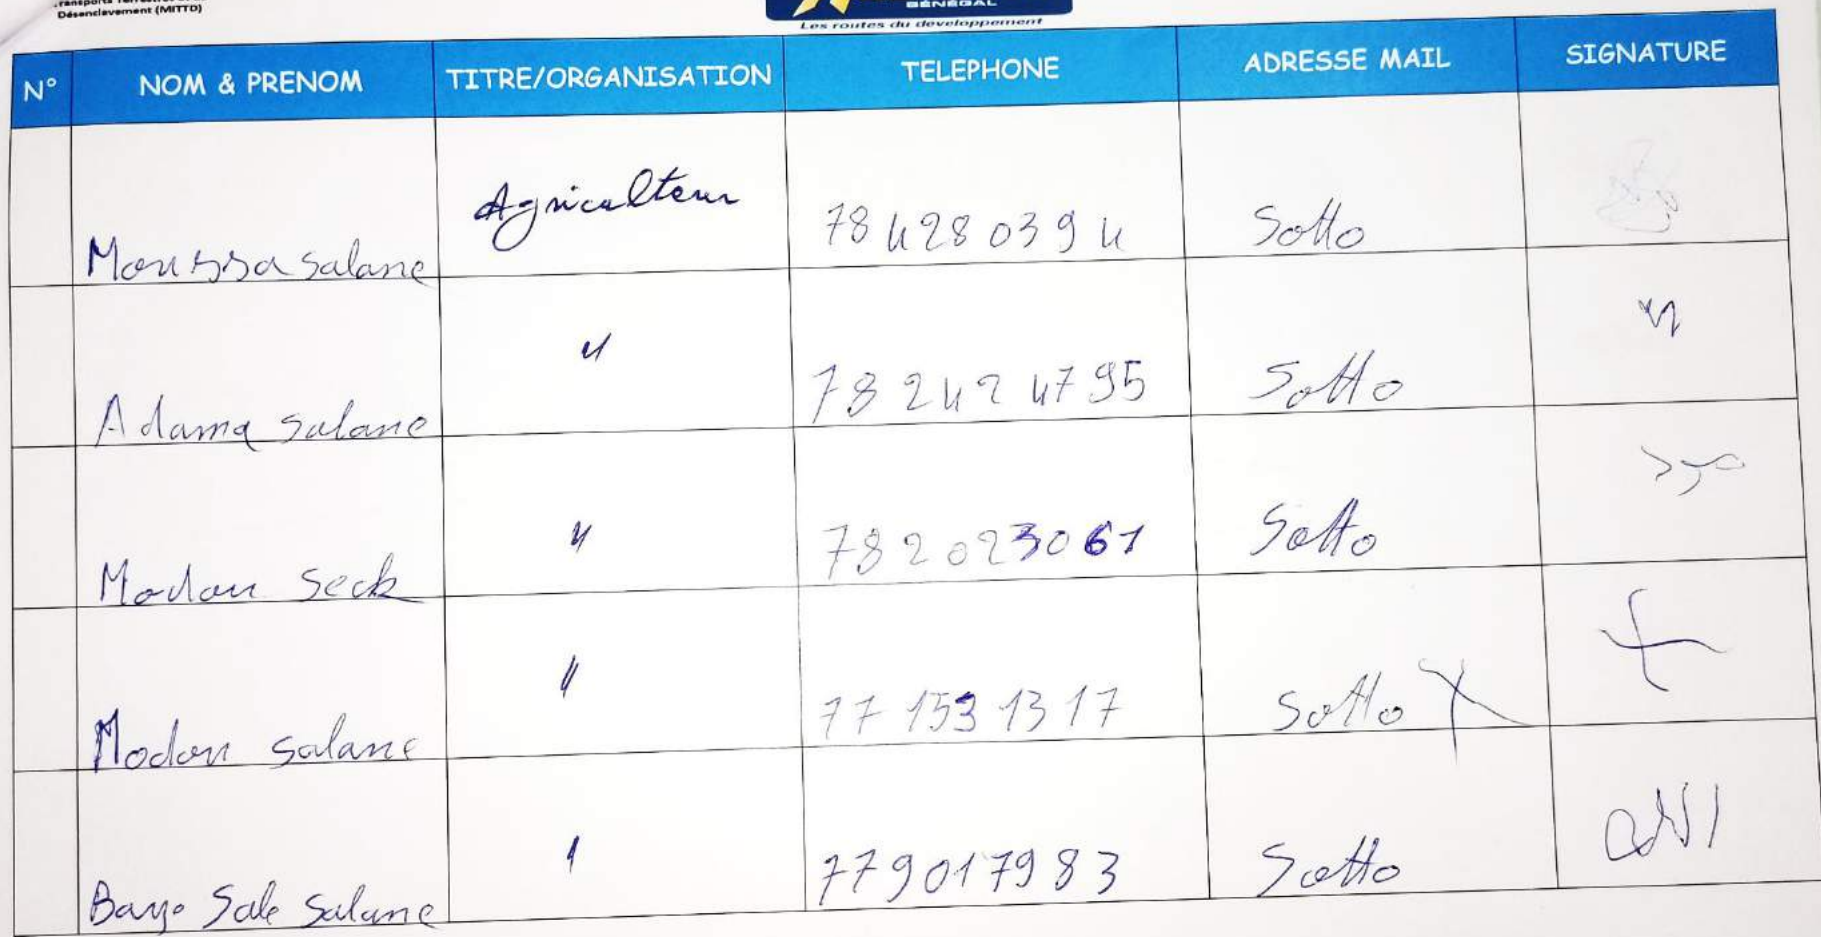 Désenclavement (MITTD)
SÉNÉGAL
Les routes du developpement
N° NOM & PRENOM TITRE/ORGANISATION TELEPHONE ADRESSE MAIL SIGNATURE
Moussa Salane Agriculteur 78 428 039 4 Sotto
Adama Salane " 78 242 47 95 Sotto
Modou Seck " 78 202 30 61 Sotto
Modou Salane " 77 153 13 17 Sotto
Baye Sale Salane " 77 901 79 83 Sotto